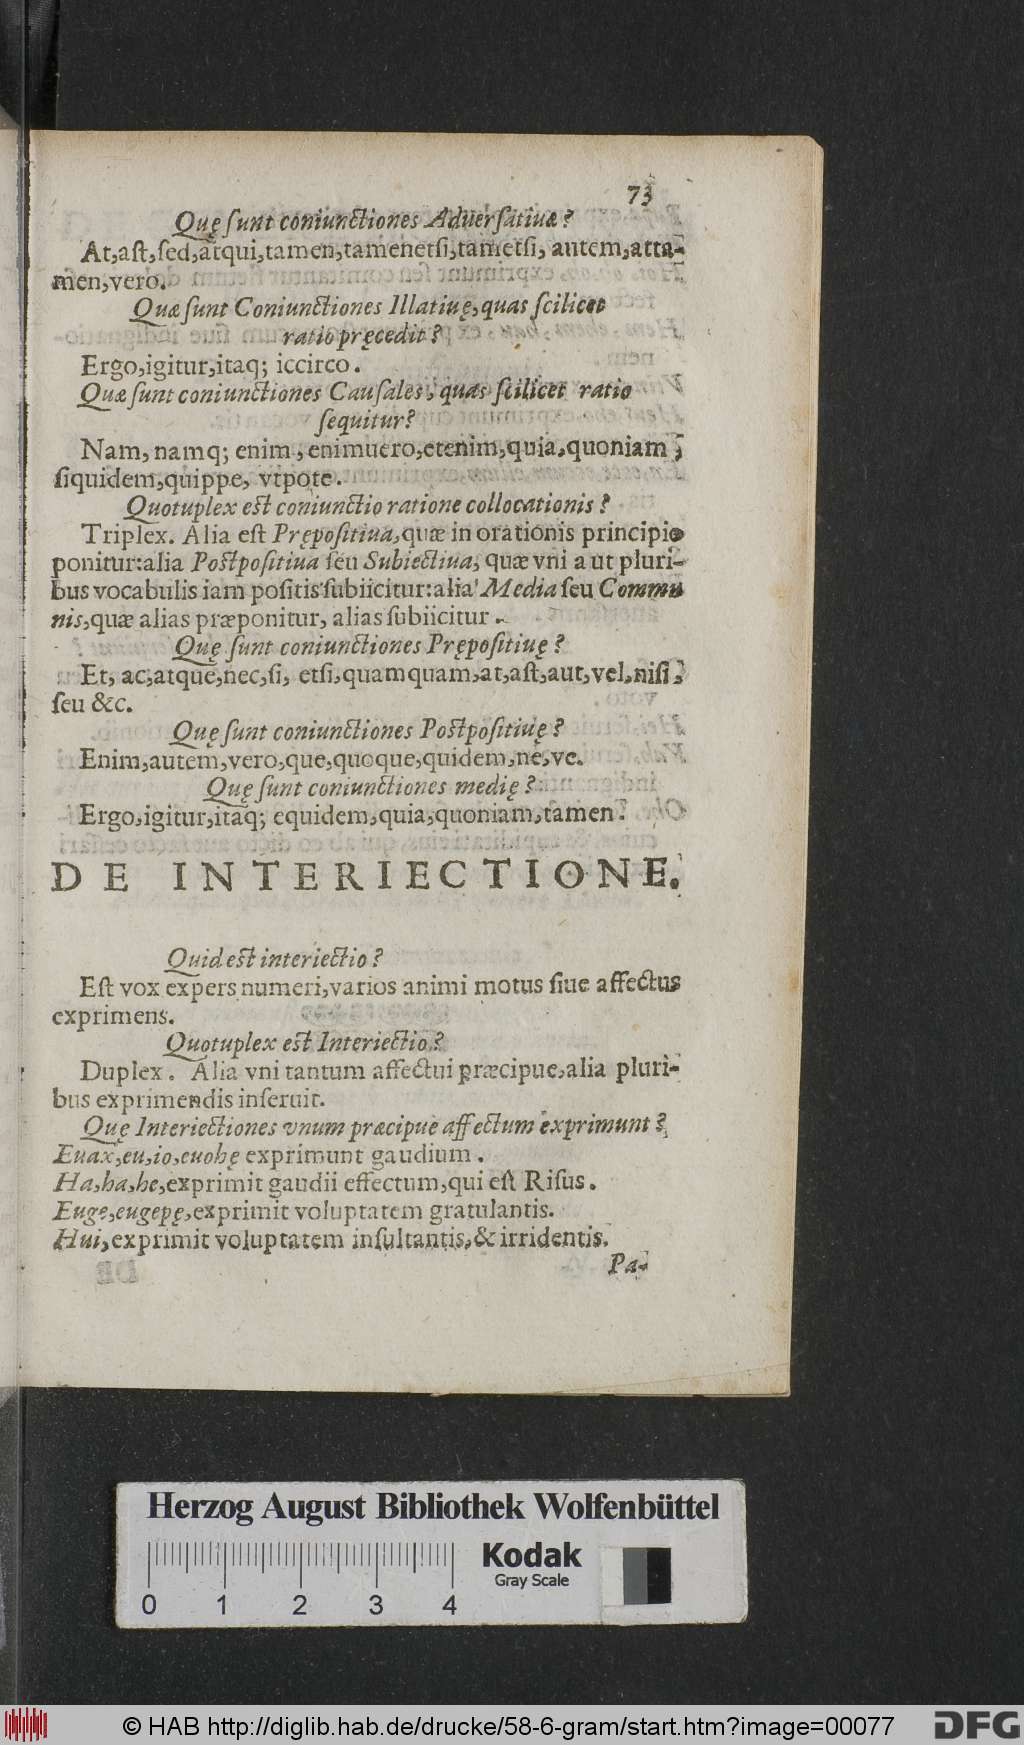 73
Quę ſunt coniunctiones Aduerſatiuæ?
At, aſt, ſed, atqui, tamen, tamenetſi, tametſi, autem, atta-
men, vero.
Quæ ſunt Coniunctiones Illatiuę, quas ſcilicet
ratio pręcedit?
Ergo, igitur, itaq; iccirco.
Quæ ſunt coniunctiones Cauſales, quas ſcilicet ratio
ſequitur?
Nam, namq; enim, enimuero, etenim, quia, quoniam,
ſiquidem, quippe, vtpote.
Quotuplex est coniunctio ratione collocationis?
Triplex. Alia eſt Prępoſitiua, quæ in orationis principio
ponitur: alia Poſtpoſitiua ſeu Subiectiua, quæ vni aut pluri-
bus vocabulis iam poſitis ſubiicitur: alia Media ſeu Commu
nis, quæ alias præponitur, alias ſubiicitur.
Quę ſunt coniunctiones Prępoſitiuę?
Et, ac, atque, nec, ſi, etſi, quamquam, at, aſt, aut, vel, niſi,
ſeu &c.
Quę ſunt coniunctiones Poſtpoſitiuę?
Enim, autem, vero, que, quoque, quidem, ne, ve.
Quę ſunt coniunctiones medię?
Ergo, igitur, itaq; equidem, quia, quoniam, tamen.
DE INTERIECTIONE.
Quid est interiectio?
Eſt vox expers numeri, varios animi motus ſiue affectus
exprimens.
Quotuplex est Interiectio?
Duplex. Alia vni tantum affectui præcipue, alia pluri-
bus exprimendis inſeruit.
Quę Interiectiones vnum præcipue affectum exprimunt?
Euax, eu, io, euohę exprimunt gaudium.
Ha, ha, he, exprimit gaudii effectum, qui eſt Riſus.
Euge, eugepę, exprimit voluptatem gratulantis.
Hui, exprimit voluptatem inſultantis, & irridentis.
Pa-
Herzog August Bibliothek Wolfenbüttel
Kodak
Gray Scale
0 1 2 3 4
© HAB http://diglib.hab.de/drucke/58-6-gram/start.htm?image=00077
DFG